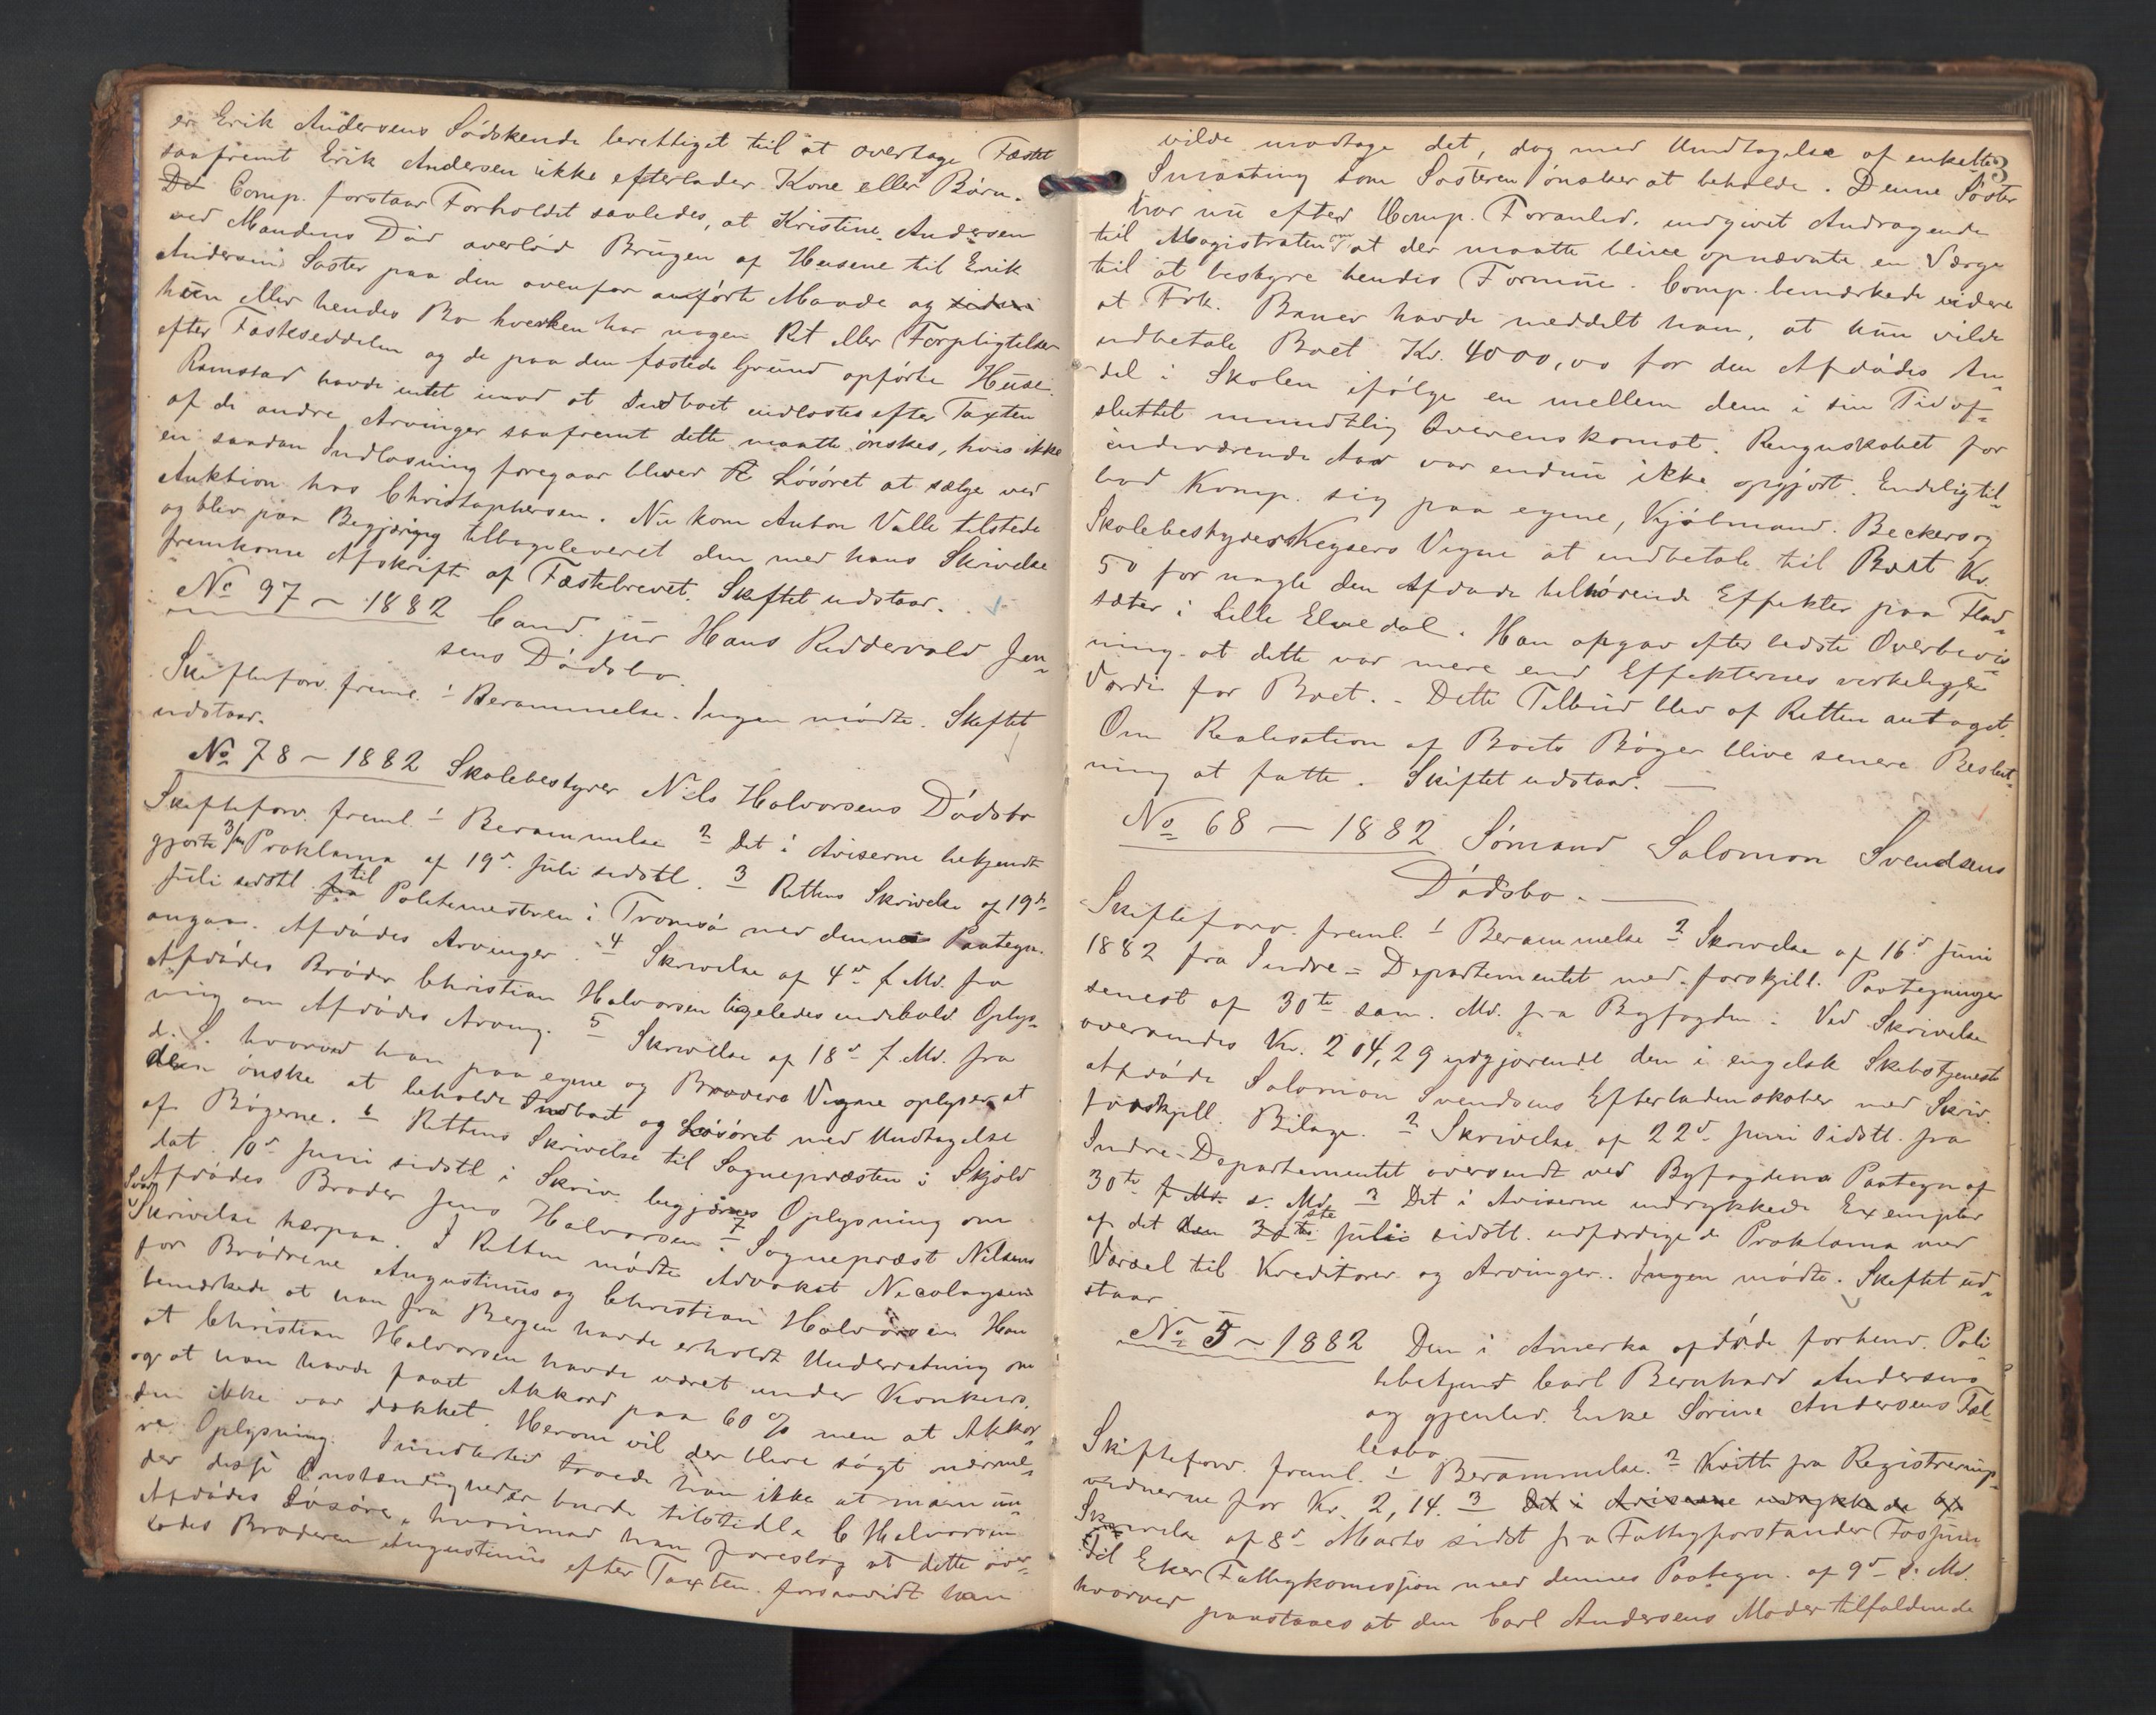 er Erik Andersens Sødskende berettiget til at overtage Fæstet
saafremt Erik Andersen ikke efterlader Kone eller Børn.
De Comp. forstaar Forholdet saaledes, at Kristine Andersen
ved Mandens Død overlod Brugen af Husene til Erik
Andersens Søster paa den ovenfor anførte Maade og siden
hun eller hendes Bo hverken har nogen Ret eller Forpligtelse
efter Fæsteseddelen og de paa den fæstede Grund opførte Huse.
Ramstad havde intet imod at Indboet indløstes efter Taxten
af de andre Arvinger saafremt dette maatte ønskes, hvis ikke
en saadan Indløsning foregaar bliver Løsøret at sælge ved
Auktion hos Christophersen. Nu kom Anton Valle tilstede
og blev paa Begjæring tilbageleveret den med hans Skrivelse
fremkomne Afskrift af Fæstebrevet. Skiftet udstaar.
No 97 - 1882 Cand. jur Hans Riddervold Jen-
sens Dødsbo.
Skifteforv. freml. 1 Berammelse. Ingen mødte. Skiftet
udstaar.
No 78 - 1882 Skolebestyrer Nils Halvorsens Dødsbo
Skifteforv. freml. 1 Berammelse 2 Det i Aviserne bekjendt
gjorte 3/m Proklama af 19de Juli sidstl. 3 Rettens Skrivelse af 19de
Juli sidstl. fra til Politimesteren i Tromsø med dennes Paategn.
angaa. Afdødes Arvinger. 4 Skrivelse af 4de f. Md. fra
Afdødes Broder Christian Halvorsen ligeledes indehold. Oplys-
ning om Afdødes Arving. 5 Skrivelse af 18de f. Md. fra
d. S. hvorved han paa egne og Broders Vegne oplyser at
den ønske at beholde Indboet og Løsøret med Undtagelse
af Bøgerne. 6 Rettens Skrivelse til Sognepræsten i Skjold
dat. 10de Juni sidstl i Skriv. begjæres Oplysning om
Afdødes Broder Jens Halvorsen. 7 Sognepræst Nilsens
Svar Skrivelse herpaa. I Retten mødte Advokat Nicolaysen
for Brødrene Augustinus og Christian Halvorsen Han
bemærkede at han fra Bergen havde erholdt Underretning om
at Christian Halvorsen havde været under Konkurs.
og at han havde faaet Akkord paa 60 % men at Akkor-
den ikke var dækket. Herom vil der blive søgt nærme-
re Oplysning. Imidlertid troede han ikke at man un-
der disse Omstændigheder burde tilstedle C Halvorsen
Afdødes Løsøre, hvorimod han foreslog at dette over-
lodes Broderen Augustinus efter Taxten forsaavidt han
3
vilde modtage det, dog med Undtagelse af enkelte
Smaating som Søsteren ønsker at beholde. Denne Søster
har nu efter Comp. Foranled. indgivet Andragende
til Magistraten om at der maatte blive opnævnte en Værge
til at bestyre hendes Formue. Comp. bemærkede videre
at Frk. Bauer havde meddelt ham, at hun vilde
udbetale Boet Kr. 4000,00 for den Afdødes An-
del i Skolen ifølge en mellem dem i sin Tid af-
sluttet mundtlig Overenskomst. Regnskabet for
indeværende Aar var endnu ikke opgjort. Endelig til-
bød Komp. sig paa egne, Kjøbmand. Beckers og
Skolebestyrer Keysers Vegne at indbetale til Boet Kr.
50 for nogle den Afdøde tilhørende Effekter paa Flad-
sæter i Lille Elvedal. Han opgav efter bedste Overbevis-
ning at dette var mere end Effekternes virkelige
Værdi for Boet. - Dette Tilbud blev af Retten antaget.
Om Realisation af Boets Bøger blive senere Beslut-
ning at fatte. Skiftet udstaar. —
No 68 — 1882 Sømand Salomon Svendsens
Dødsbo. —
Skifteforv. freml. 1 Berammelse 2 Skrivelse af 16de Juni
1882 fra Indre-Departementet med forskjell. Paategninger
senest af 30te sam. Md. fra Byfogden. Ved Skrivelse
oversendes Kr. 204,29 udgjørende den i engelsk Skibstjeneste
afdøde Salomon Svendsens Efterladenskaber med Skriv.
forskjell. Bilage. 2 Skrivelse af 22de Juni sidstl. fra
Indre-Departementet oversendt ved Byfogdens Paategn af
30te f. Md. s. Md. 3 Det i Aviserne indrykkede Exemplar
af det den ste Juli sidstl. udfærdigede Proklama med
Varsel til Kreditorer og Arvinger. Ingen mødte. Skiftet ud-
staar
No 5 - 1882 Den i Amerika afdøde forhenv. Poli
tibetjent Carl Bernhard Andersens
og gjenlev. Enke Sørine Andersens Fæl-
lesbo
Skifteforv. freml. 1 Berammelse. 2 Kvitt. fra Registrerings-
vidnerne for Kr. 2,14. 3 Det i Aviserne indrykkede af
Skrivelse af 8de Marts sidst fra Fattigforstander Fossum
til Eker Fattigkomission med dennes Paategn. af 9de s. Md.
hvorved paastaaes at den Carl Andersens Moder tilfaldende